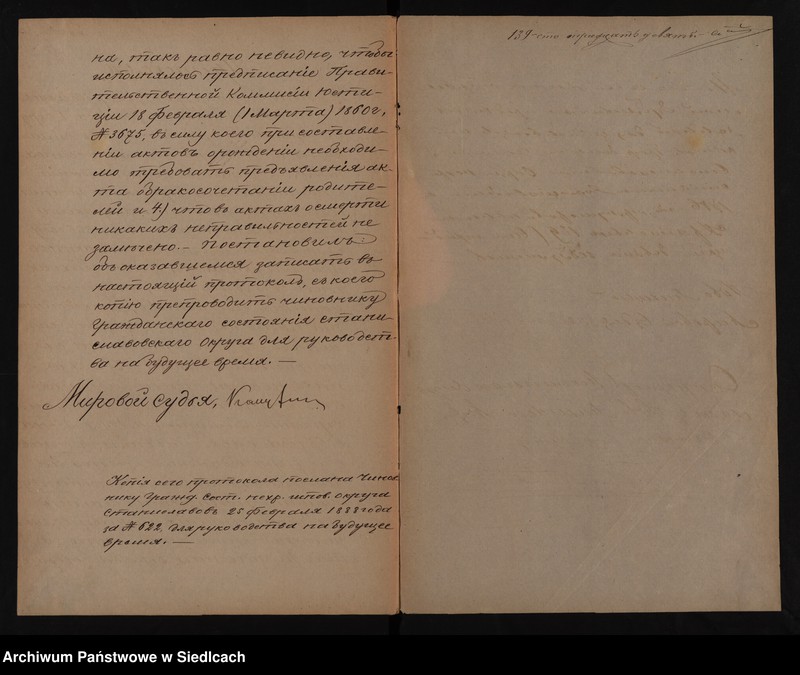 на, такъ равно невидно, чтобы
исполнялось предписаніе Прави-
тельственной Коммисіи Юсти-
ціи 18 Февраля (1 Марта) 1860 г,
№ 3675, въ силу коего при составле-
ніи актовъ орожденіи необходи-
мо требовать предъявленія ак-
та обракосочетаніи родите-
лей и 4.) что въ актахъ осмерти
никакихъ неправильностей не
замѣчено. – Постановилъ:
объ оказавшемся записать въ
настоящій протоколъ, съ коего
копію препроводить чиновнику
Гражданскаго состоянія стани-
славовскаго округа для руководст-
ва на будущее время. —
Мировой Судья,
Копія сего протокола послана Чинов
нику Гражд. Сост. нехр. испов. округа
Станиславовъ 25 Февраля 1888 года
за № 622. для руководства на будущее
время. —
139 сто тридцать девять
Archiwum Państwowe w Siedlcach